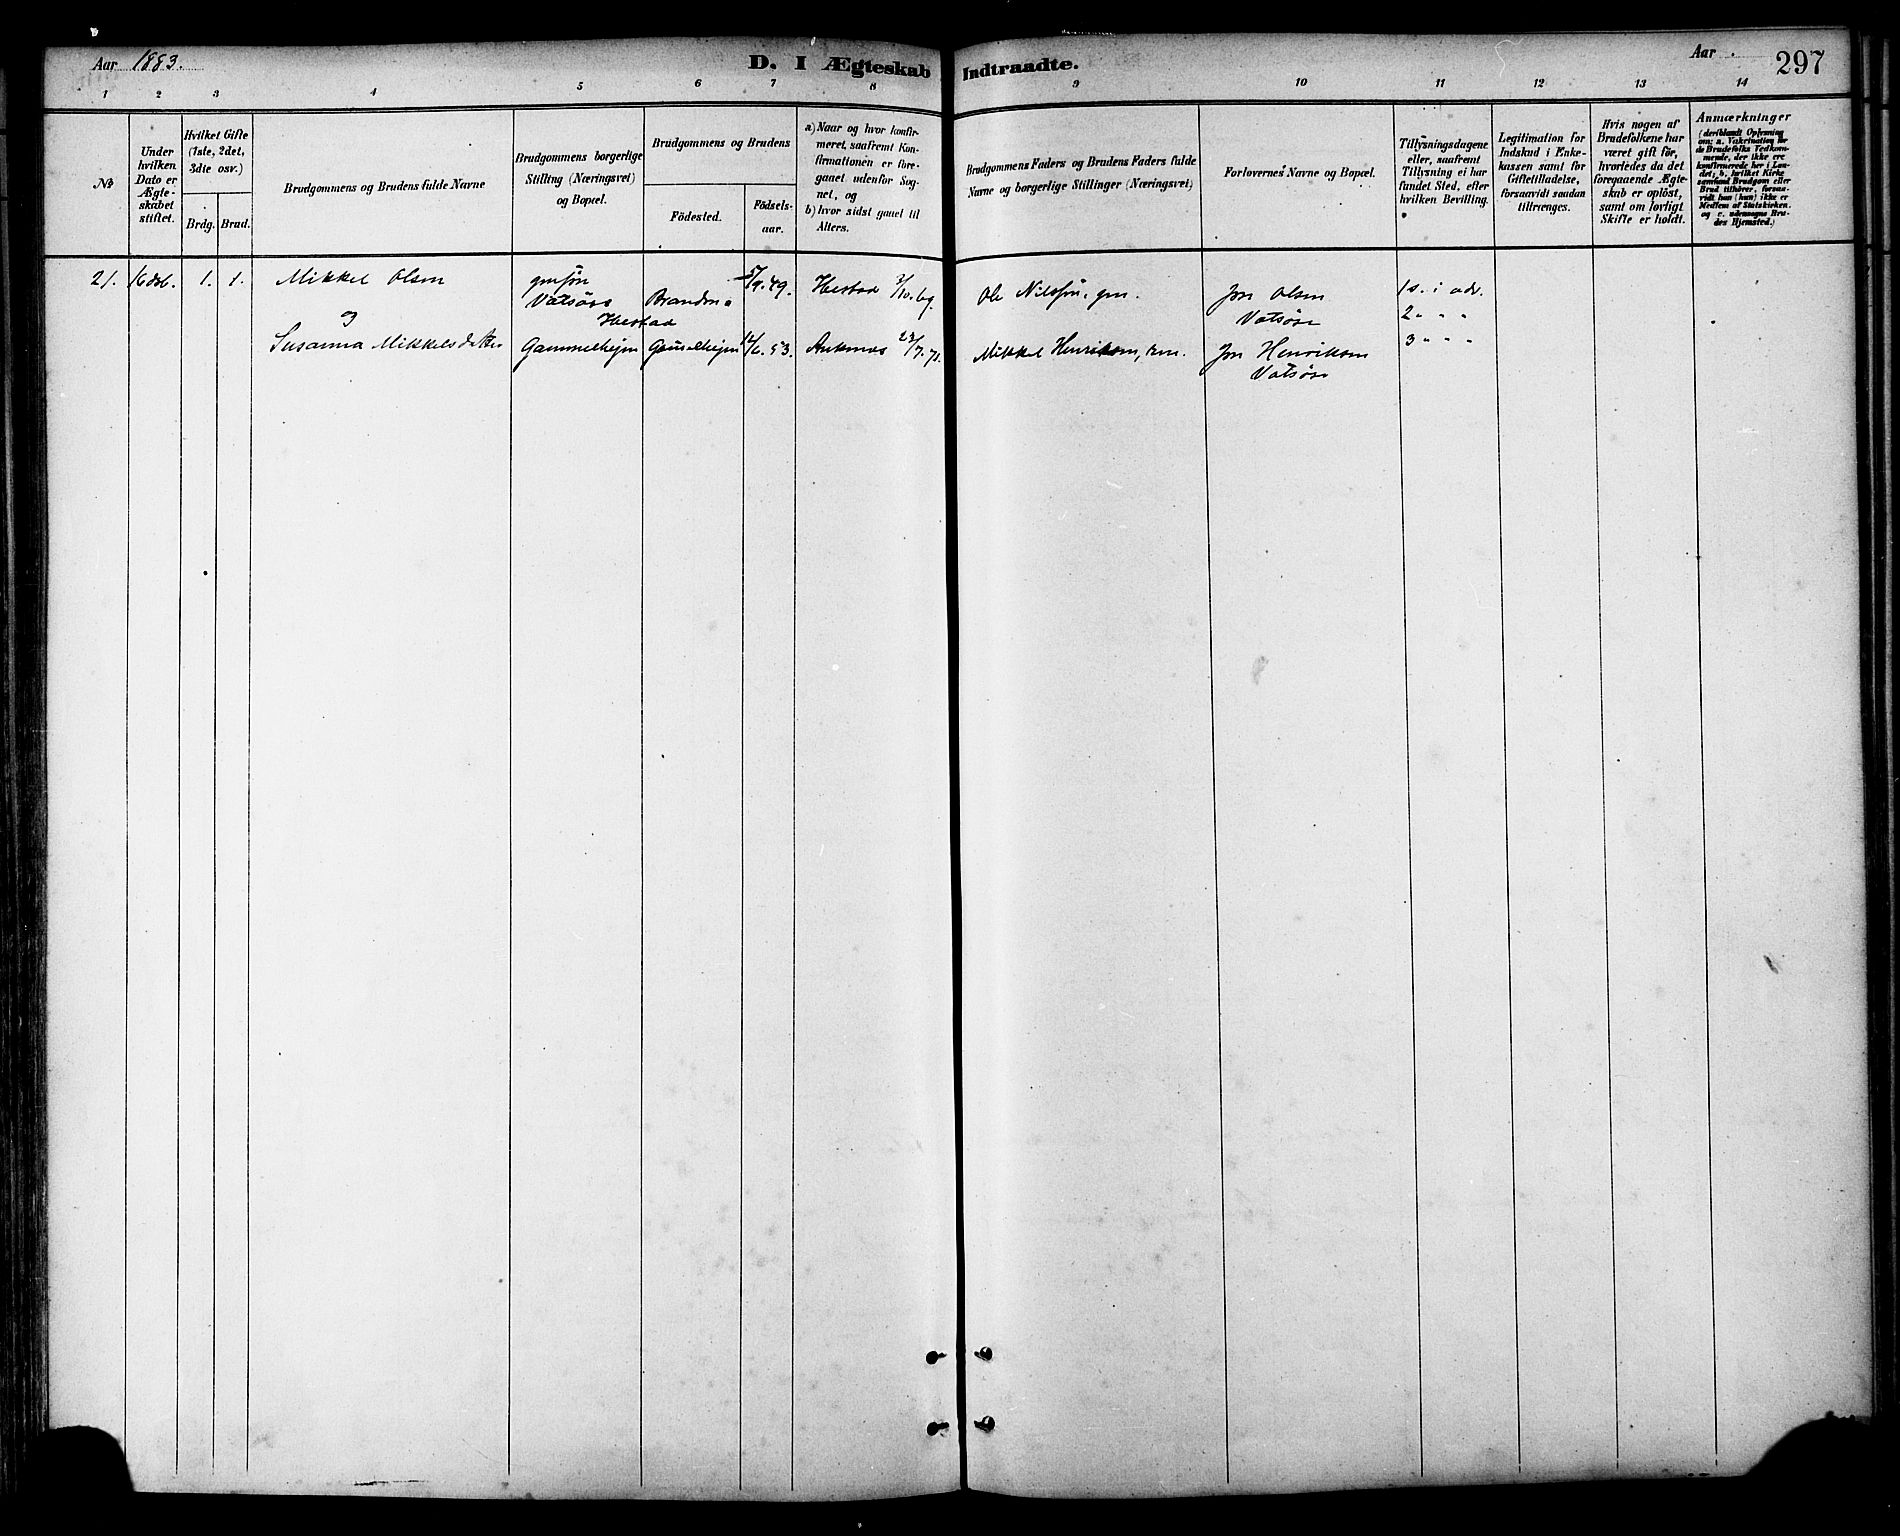 Aar 1883.
D. I Ægteskab Indtraadte.
Aar
297
1 2 3 4 5 6 7 8 9 10 11 12 13 14
№
Under hvilken Dato er Ægte-skabet stiftet.
Hvilket Gifte (1ste, 2det, 3die osv.)
Brdg. Brud.
Brudgommens og Brudens fulde Navne
Brudgommens borgerlige Stilling (Næringsvei) og Bopæl.
Brudgommens og Brudens
Födested.
Födsels-aar.
a) Naar og hvor konfir-meret, saafremt Kon-firmationen er fore-gaaet udenfor Sog-net, og
b) hvor sidst gaaet til Alters.
Brudgommens Faders og Brudens Faders fulde Navne og borgerlige Stillinger (Næringsvei)
Forlovernes Navne og Bopæl.
Tillysningsdagene eller, saafremt Tillysning ei har fundet Sted, efter hvilken Bevilling.
Legitimation for Indskud i Enke-kassen samt for Giftetilladelse, forsaavidt saadan tiltrænges.
Hvis nogen af Brudefolkene har været gift för, hvorledes da det foregaaende Ægte-skab er oplöst, samt om lovligt Skifte er holdt.
Anmærkninger
(deriblandt Oplysning om: a. Vaksination for de Brudefolks Vedkom-mende, der ikke ere konfirmerede her i Lan-det; b. hvilket Kirke-samfund Brudgom eller Brud tilhörer, forsaa-vidt han (hun) ikke er Medlem af Statskirken. og c. udensogns Bru-des Hjemsted.)
21. 16 dsb. 1. 1. Mikkel Olsen
Vatsöss
5/9. 49. Hestad 3/10. 69
Ole Nilssön, gm. Jon Olsen 1 s. i adv.
og
Hestad
Vatsöss 2 " " "
Susanna Mikkelsdatter Gammelhejm 14/6. 53. 23/7. 71.
Mikkel Henriksen, Jon Henriksen 3 " " "
Vatsöss